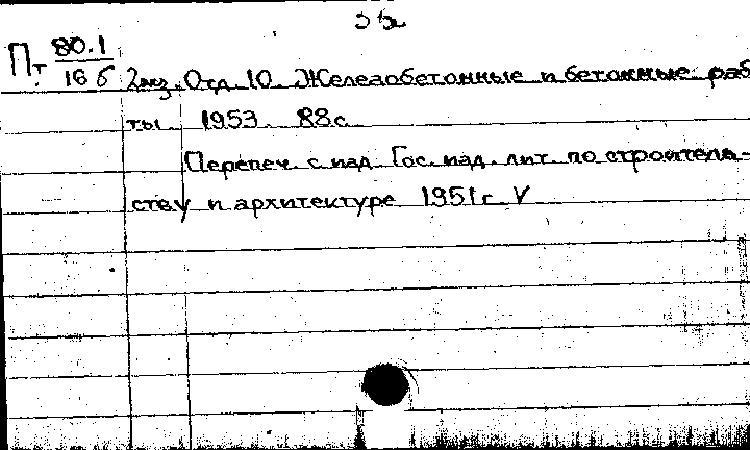 Пт 80.1
16 б 2экз. Отд. 10. Железобетонные и бетонные раб
ты. 1953. 88с.
Перепеч. с изд. Гос. изд. лит. по строитель-
ству и архитектуре 1951г. V